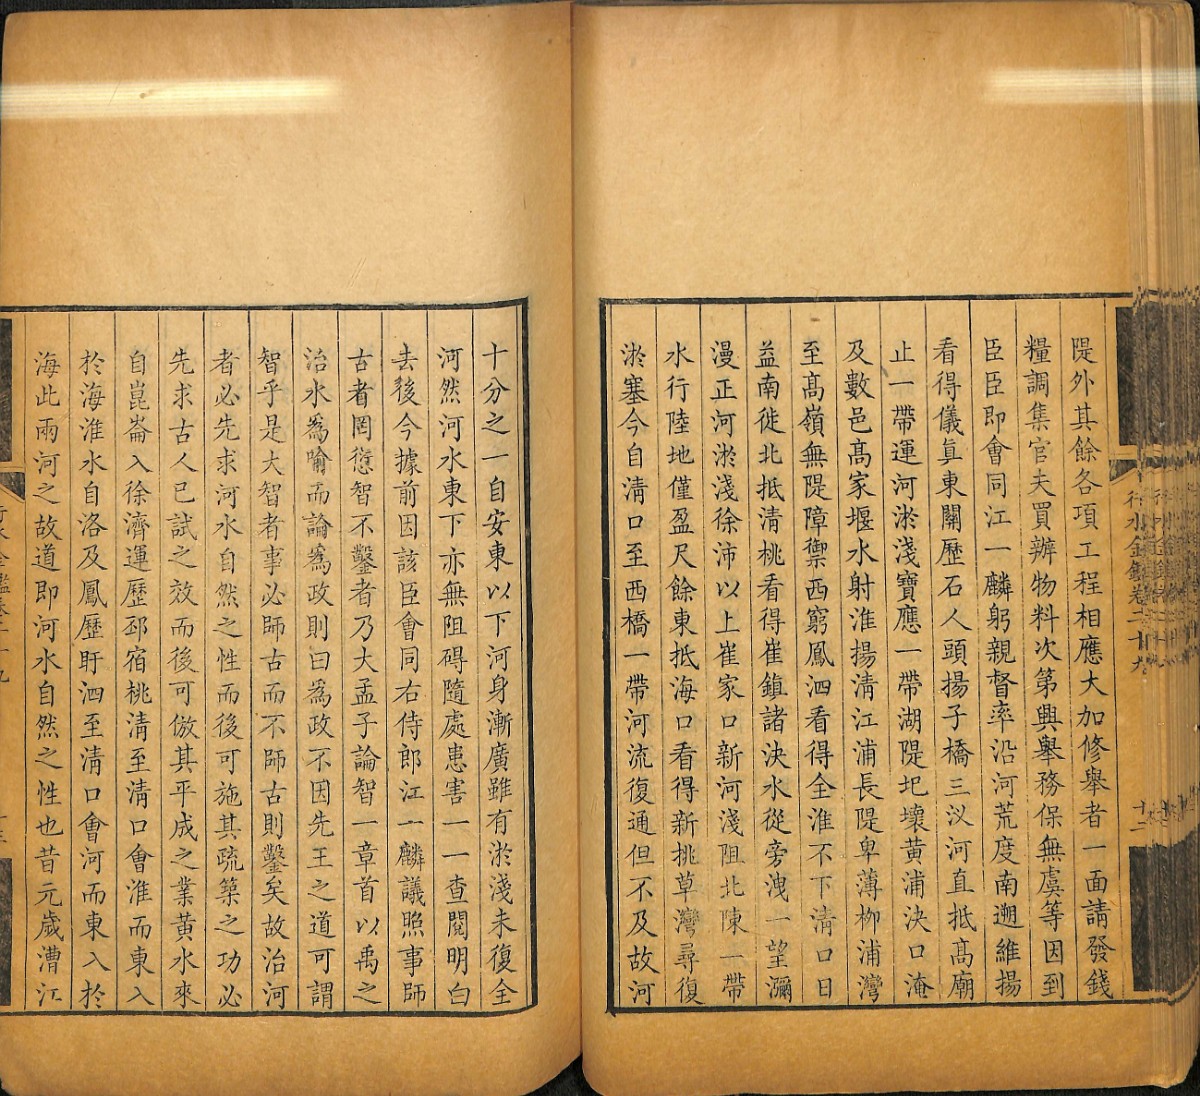 隄外其餘各項工程相應大加修舉者一面請發錢
糧調集官夫買辦物料次第興舉務保無虞等因到
臣臣即會同江一麟躬親督率沿河荒度南遡維揚
看得儀眞東關歷石人頭揚子橋三汊河直抵高廟
止一帶運河淤淺寶應一帶湖隄圯壞黃浦決口淹
及數邑高家堰水射淮揚淸江浦長隄卑薄柳浦灣
至高嶺無隄障禦西窮鳳泗看得全淮不下淸口日
益南徙北抵淸桃看得崔鎮諸決水從旁洩一望瀰
漫正河淤淺徐沛以上崔家口新河淺阻北陳一帶
水行陸地僅盈尺餘東抵海口看得新挑草灣尋復
淤塞今自淸口至西橋一帶河流復通但不及故河
行水金鑑卷二十九
十二
十分之一自安東以下河身漸廣雖有淤淺未復全
河然河水東下亦無阻碍隨處患害一一查閱明白
去後今據前因該臣會同右侍郎江一麟議照事師
古者罔愆智不鑿者乃大孟子論智一章首以禹之
治水爲喻而論爲政則曰爲政不因先王之道可謂
智乎是大智者事必師古而不師古則鑿矣故治河
者必先求河水自然之性而後可施其疏築之功必
先求古人已試之效而後可倣其平成之業黃水來
自崑崙入徐濟運歷邳宿桃淸至淸口會淮而東入
於海淮水自洛及鳳歷盱泗至淸口會河而東入於
海此兩河之故道即河水自然之性也昔元歲漕江